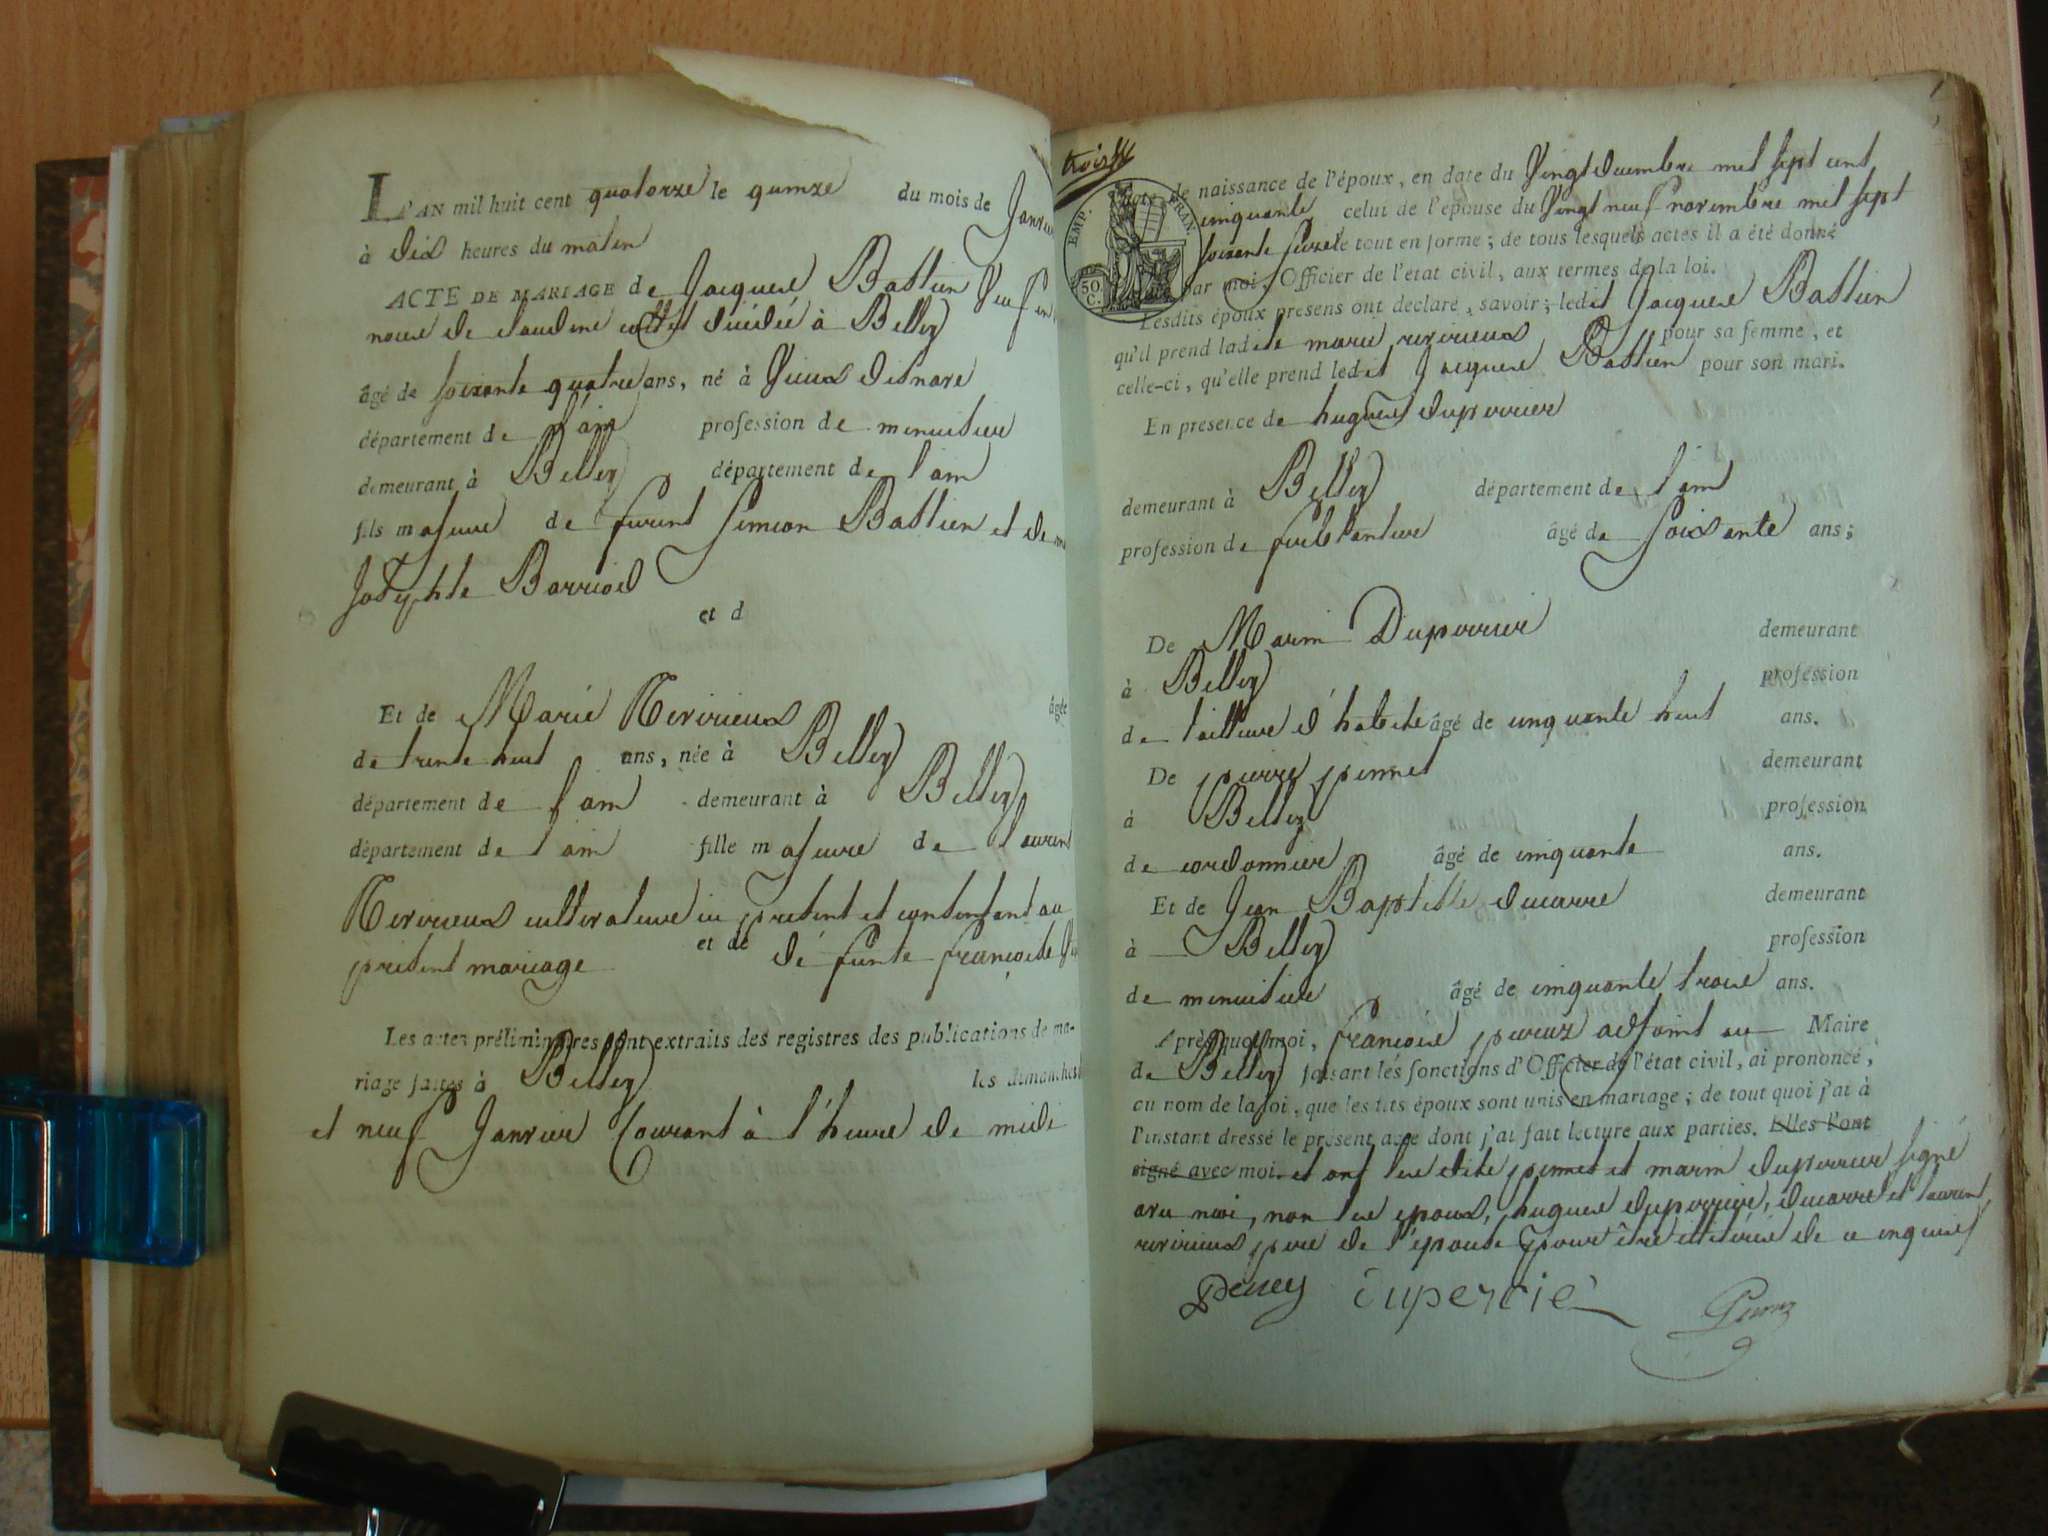 L'AN mil huit cent quatorze le quinze du mois de Janvier
à dix heures du matin
ACTE DE MARIAGE de Jacques Battin veuf en
noces de claudine décédée à Belley
âgé de soixante quatre ans, né à Vieux
département de l'ain profession de menuisier
demeurant à Belley département de l'ain
fils majeur de furent Simeon Battin et de
Josephte
et d
Et de Marie Rivirieux âgée
de trente huit ans, née à Belley
département de l'ain demeurant à Belley
département de l'ain fille majeure de laurent
Rivirieux cultivateur ici présent et consentant au
présent mariage et de défunte françoise
Les actes préliminaires sont extraits des registres des publications de ma-
riage faites à Belley les dimanches
et neuf Janvier Courant à l'heure de midi
trois
EMP. FRAN.
50 C.
de naissance de l'époux, en date du Vingt decembre mil sept cent
cinquante celui de l'épouse du Vingt neuf novembre mil sept
soixante le tout en forme ; de tous lesquels actes il a été donné
par moi, Officier de l'état civil, aux termes de la loi.
Lesdits époux présens ont déclaré, savoir ; ledit Jacques Battin
qu'il prend ladite marie rivirieux pour sa femme, et
celle-ci, qu'elle prend ledit Jacques Battin pour son mari.
En présence de hugues duperrier
demeurant à Belley département de l'ain
profession de âgé de Soixante ans ;
De Marin Duperrier demeurant
à Belley profession
de tailleur d'habits âgé de cinquante huit ans.
De pierre pernet demeurant
à Belley profession
de cordonnier âgé de cinquante ans.
Et de Jean Baptiste ducarre demeurant
à Belley profession
de menuisier âgé de cinquante trois ans.
Après quoi, moi, françois adjoint au Maire
de Belley faisant les fonctions d'Officier de l'état civil, ai prononcé,
au nom de la loi, que lesdits époux sont unis en mariage ; de tout quoi j'ai à
l'instant dressé le présent acte dont j'ai fait lecture aux parties. Elles l'ont
signé avec moi. et ont les dits pernet et marin duperrier signé
avec moi, non les epoux, hugues duperrier, ducarre et laurent
rivirieux pere de l'epouse pour être illitérés de ce enquis
duperrié